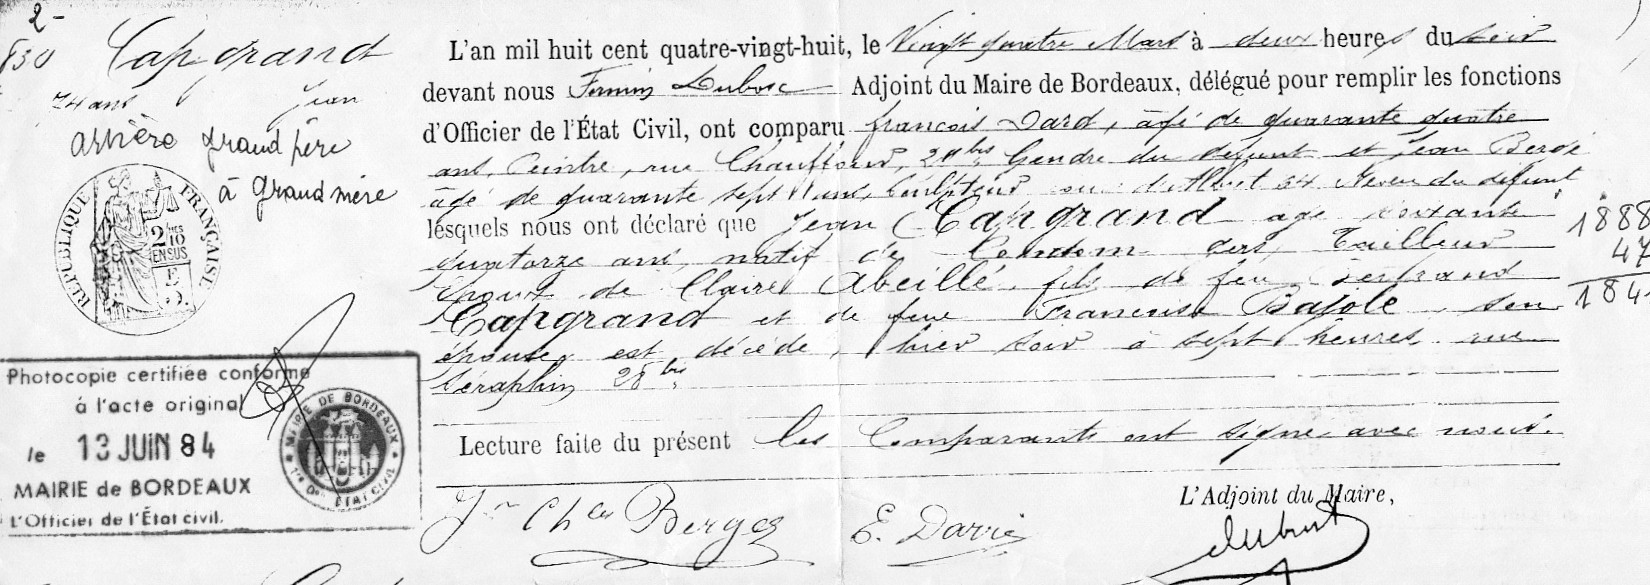 2-
830 Capgrand
74 ans Jean
arrière grand père
à grand mère
RÉPUBLIQUE FRANÇAISE
2/10
EN SUS
L'an mil huit cent quatre-vingt-huit, le Vingt quatre Mars à deux heures du soir
devant nous Firmin Dubosc Adjoint du Maire de Bordeaux, délégué pour remplir les fonctions
d'Officier de l'État Civil, ont comparu françois Dard, âgé de quarante quatre
ans, Peintre, rue Chauffour, 20 bis Gendre du défunt et Jean Bergé
âgé de quarante sept ans, Sculpteur 34 Neveu du défunt
lesquels nous ont déclaré que Jean Capgrand agé soixante
quatorze ans, natif de Condom gers, Tailleur
époux de Claire Abeillé fils de feu Bertrand
Capgrand et de feue son
épouse, est décédé, hier soir à sept heures, rue
Séraphin 28 bis
Lecture faite du présent les Comparants ont signé avec nous.
1888
47
184
Photocopie certifiée conforme
à l'acte original
le 13 JUIN 84
MAIRIE de BORDEAUX
L'Officier de l'État civil.
MAIRIE DE BORDEAUX
ÉTAT CIVIL
L'Adjoint du Maire,
Jn Ch les Berges
E. Davi